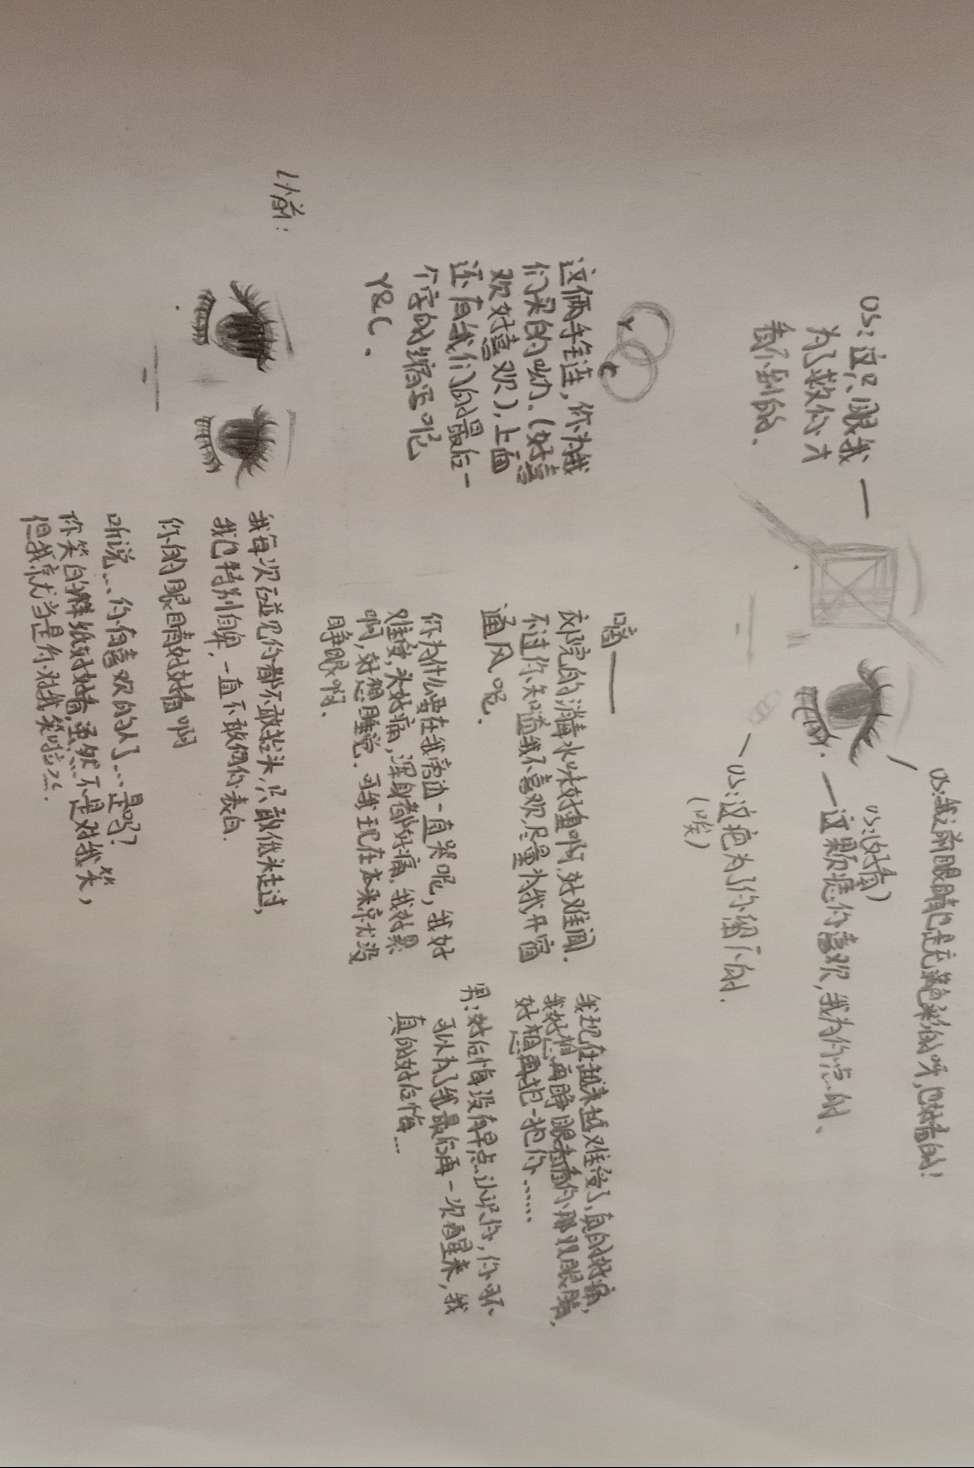 OS:我之前眼睛也是充满色彩的呀,也好看的!
OS:(好看)
一这颗后痣你喜欢,我为你点的、
OS:这只眼我
为了救你才
看不到的、
一OS:这疤为了你留下的.
(唉)
Y
C
这俩手链,你为我
们买的呦.(好喜
欢好喜欢),上面
还有我们的最后一
个字的缩写呢
Y&C.
嘀——
医院的消毒水味好重啊,好难闻.
不过你知道我不喜欢,尽量为我开窗
通风呢.
你为什么要在我旁边一直哭呢,我好
难受,头好痛,浑身都好痛,我好累
啊,好想睡觉.可我现在本来就没
睁眼啊.
我现在越来越难受了,真的好痛,
我好想再睁眼看看你那双眼睛,
好想再抱一抱你……
男:好后悔没有早点认识你,你可不
可以为了我最后再一次醒来,我
真的好后悔…
以前:
我每次碰见你都不敢抬头,只敢低头走过,
我也特别自卑,一直不敢向你表白.
你的眼睛好好看啊
听说…你有喜欢的人了…是吗?
你笑的样纸好好看,虽然…不是对我笑,
但我就当是你对我笑啦